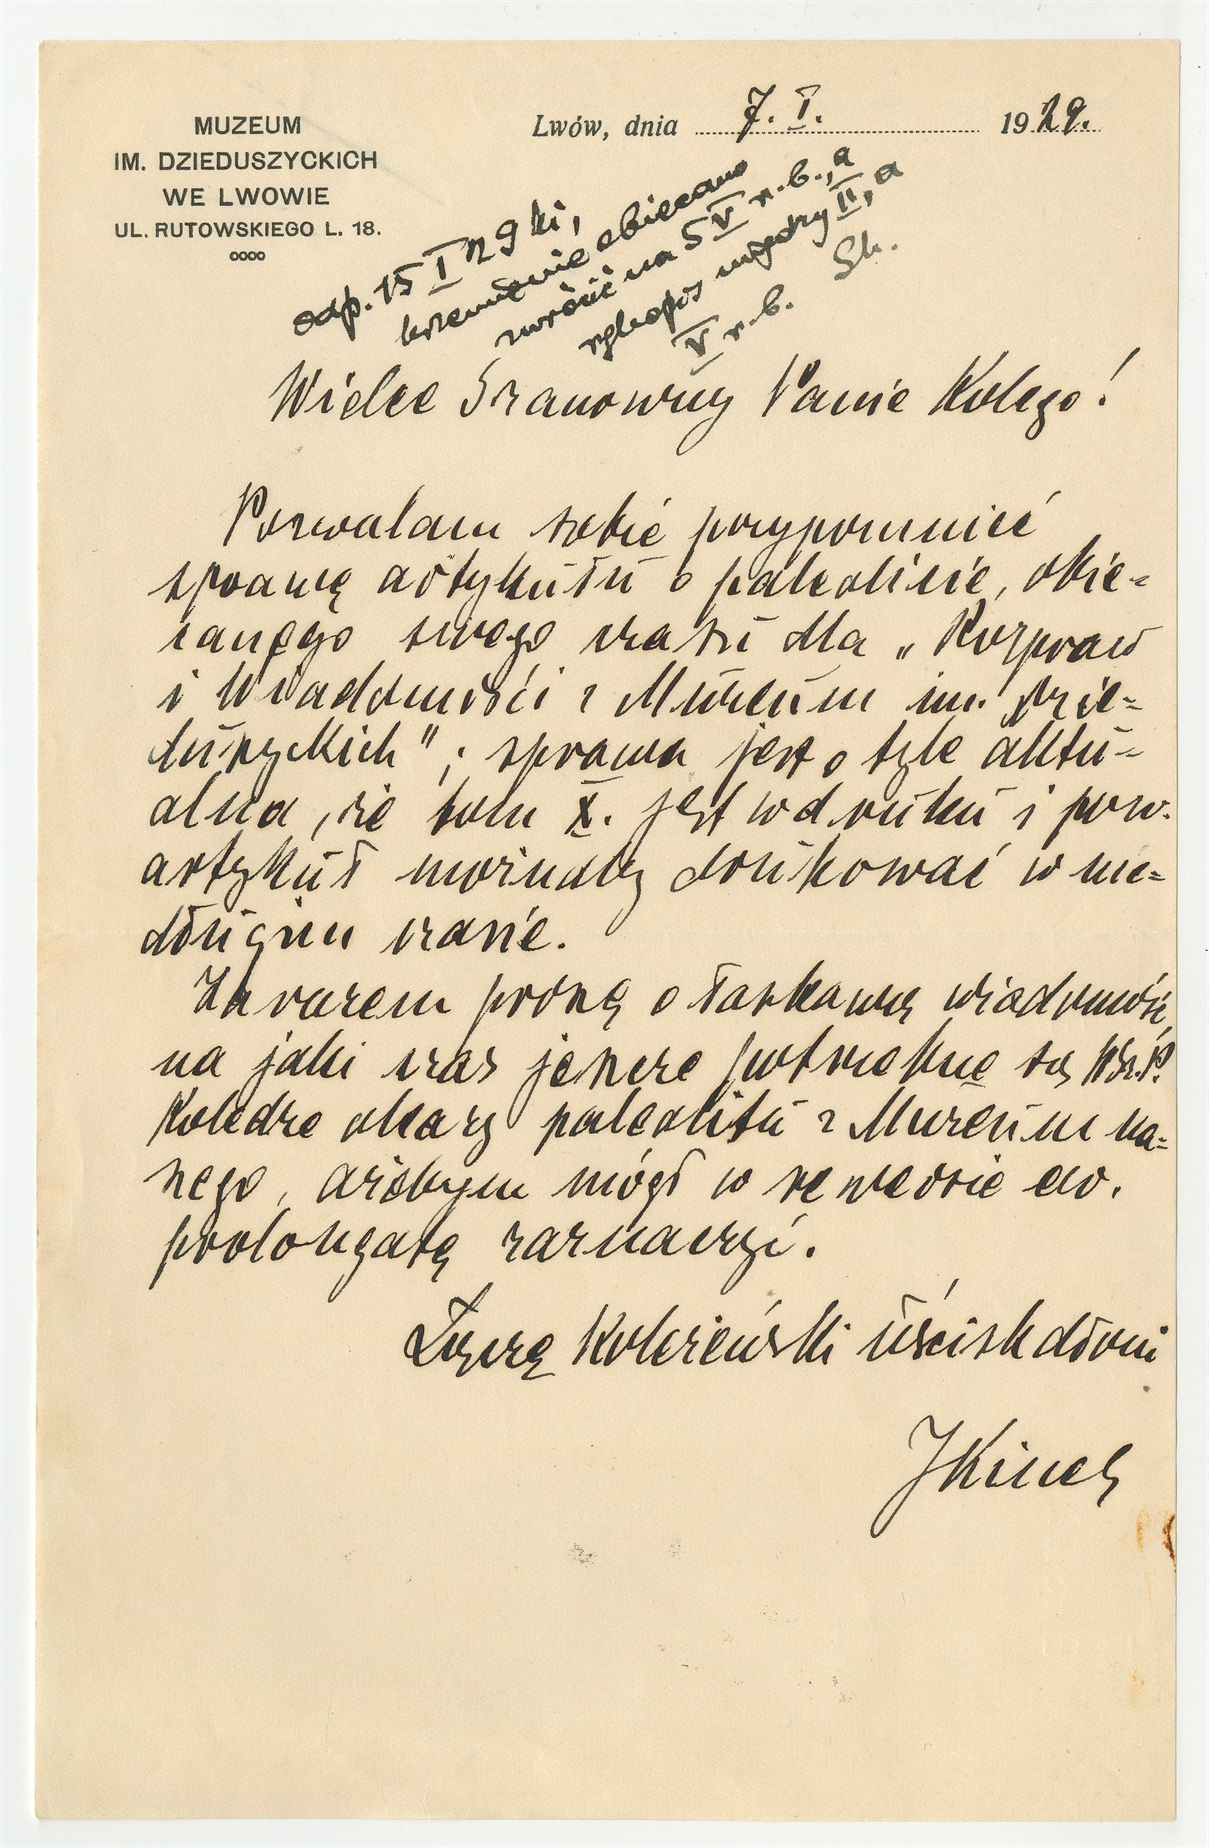 MUZEUM
IM. DZIEDUSZYCKICH
WE LWOWIE
UL. RUTOWSKIEGO L. 18.
Lwów, dnia 7. I. 1929.
odp. 15 I 29 ki,
krzemienie obiecano
zwrócić na 5 V r.b., a
rękopis między II, a
V r. b. Sk.
Wielce Szanowny Panie Kolego!
Pozwalam sobie przypomnieć
sprawę artykułu o paleolicie, obie-
canego swego czasu dla „Rozpraw
i Wiadomości z Muzeum im. Dzie-
duszyckich"; sprawa jest o tyle aktu-
alna, że tom X. jest w druku i pow.
artykuł możnaby drukować w nie-
długim czasie.
Zarazem proszę o łaskawą wiadomość,
na jaki czas jeszcze potrzebne są WSz.P.
Koledze okazy paleolitu z Muzeum na-
szego, ażebym mógł w rewersie ew.
prolongatę zaznaczyć.
Łączę koleżeński uścisk dłoni
JKinel